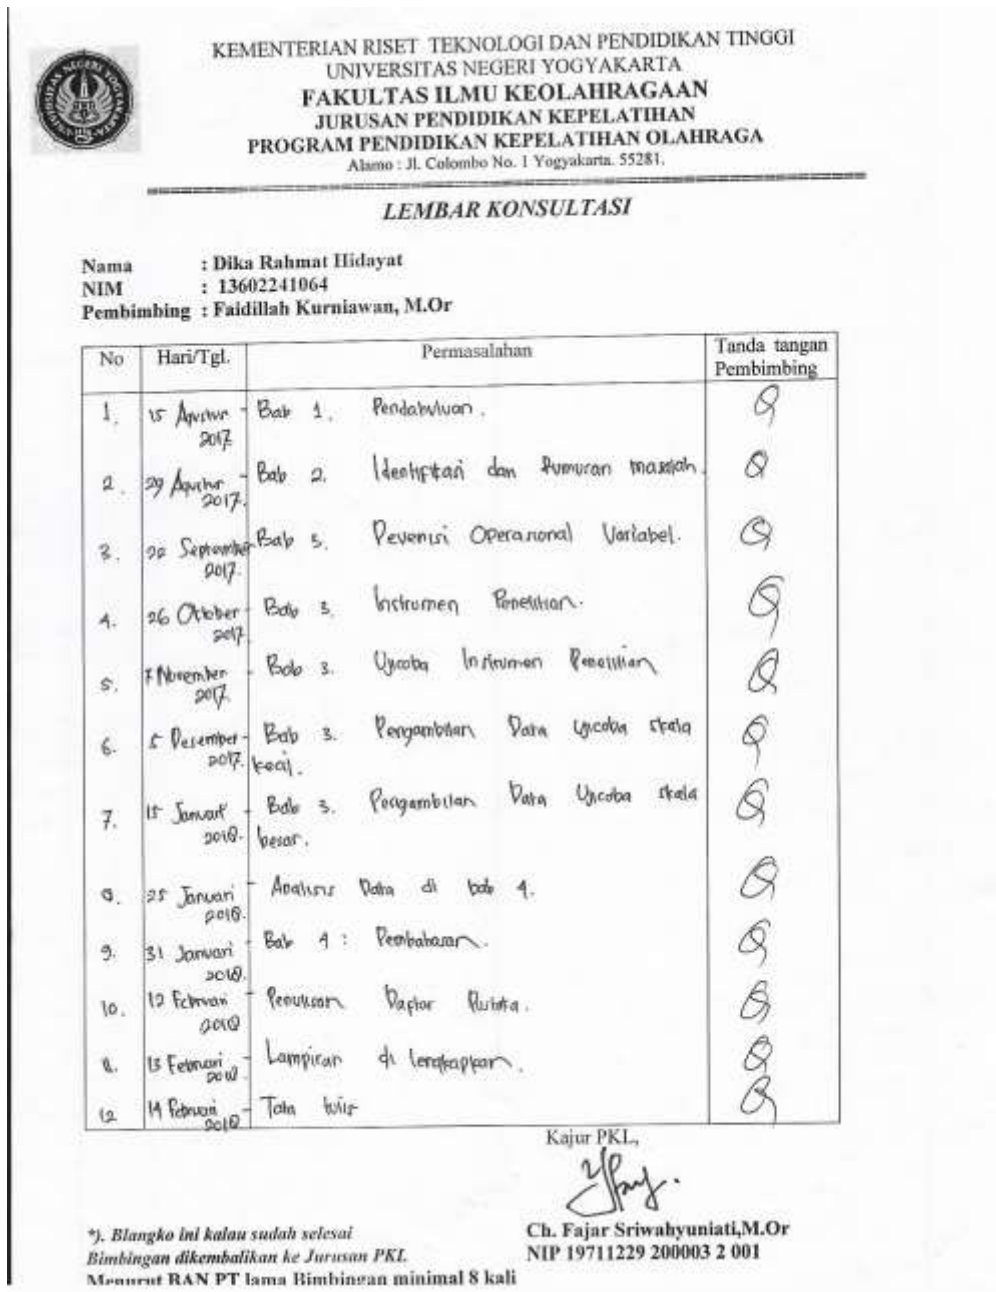 KEMENTERIAN RISET TEKNOLOGI DAN PENDIDIKAN TINGGI
UNIVERSITAS NEGERI YOGYAKARTA
FAKULTAS ILMU KEOLAHRAGAAN
JURUSAN PENDIDIKAN KEPELATIHAN
PROGRAM PENDIDIKAN KEPELATIHAN OLAHRAGA
Alamo : Jl. Colombo No. 1 Yogyakarta. 55281.
UNIVERSITAS NEGERI YOGYAKARTA
LEMBAR KONSULTASI
Nama : Dika Rahmat Hidayat
NIM : 13602241064
Pembimbing : Faidillah Kurniawan, M.Or
No Hari/Tgl. Permasalahan Tanda tangan
Pembimbing
1. 15 Agustus - Bab 1. Pendahuluan.
2017
2. 29 Agustus - Bab 2. Identifikasi dan Rumusan masalah.
2017.
3. September Bab 3. Devenisi Operasional Variabel.
2017.
4. 26 Oktober - Bab 3. Instrumen Penelitian.
2017
5. 7 November - Bab 3. Ujicoba Instrumen Penelitian
2017.
6. 5 Desember - Bab 3. Pengambilan Data Ujicoba skala
2017. kecil.
7. 15 Januari - Bab 3. Pengambilan Data Ujicoba skala
2018. besar.
8. 25 Januari - Analisis Data di bab 4.
2018.
9. 31 Januari - Bab 4 : Pembahasan.
2018.
10. 12 Februari - Penulisan Daftar Pustaka.
2018
13 Februari - Lampiran di lengkapkan.
2018
12 14 Februari - Tata tulis
2018
Kajur PKL,
Ch. Fajar Sriwahyuniati,M.Or
NIP 19711229 200003 2 001
*). Blangko ini kalau sudah selesai
Bimbingan dikembalikan ke Jurusan PKL
Menurut BAN PT lama Bimbingan minimal 8 kali